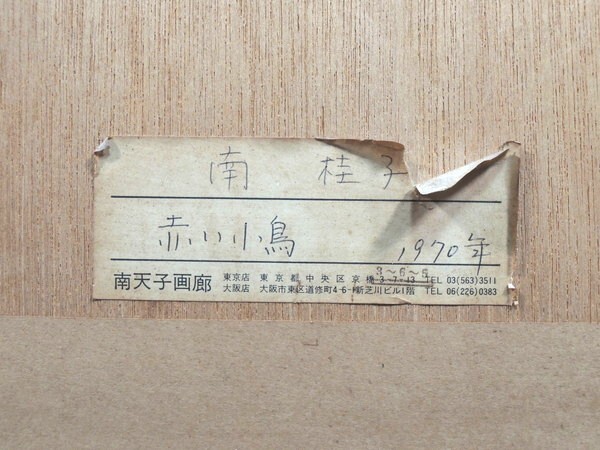 南 桂子
赤い小鳥
1970年
3～6～5
南天子画廊 東京店 東京都中央区京橋3-7-13 TEL 03(563)3511
大阪店 大阪市東区道修町4-6-1新芝川ビル1階 TEL 06(226)0383